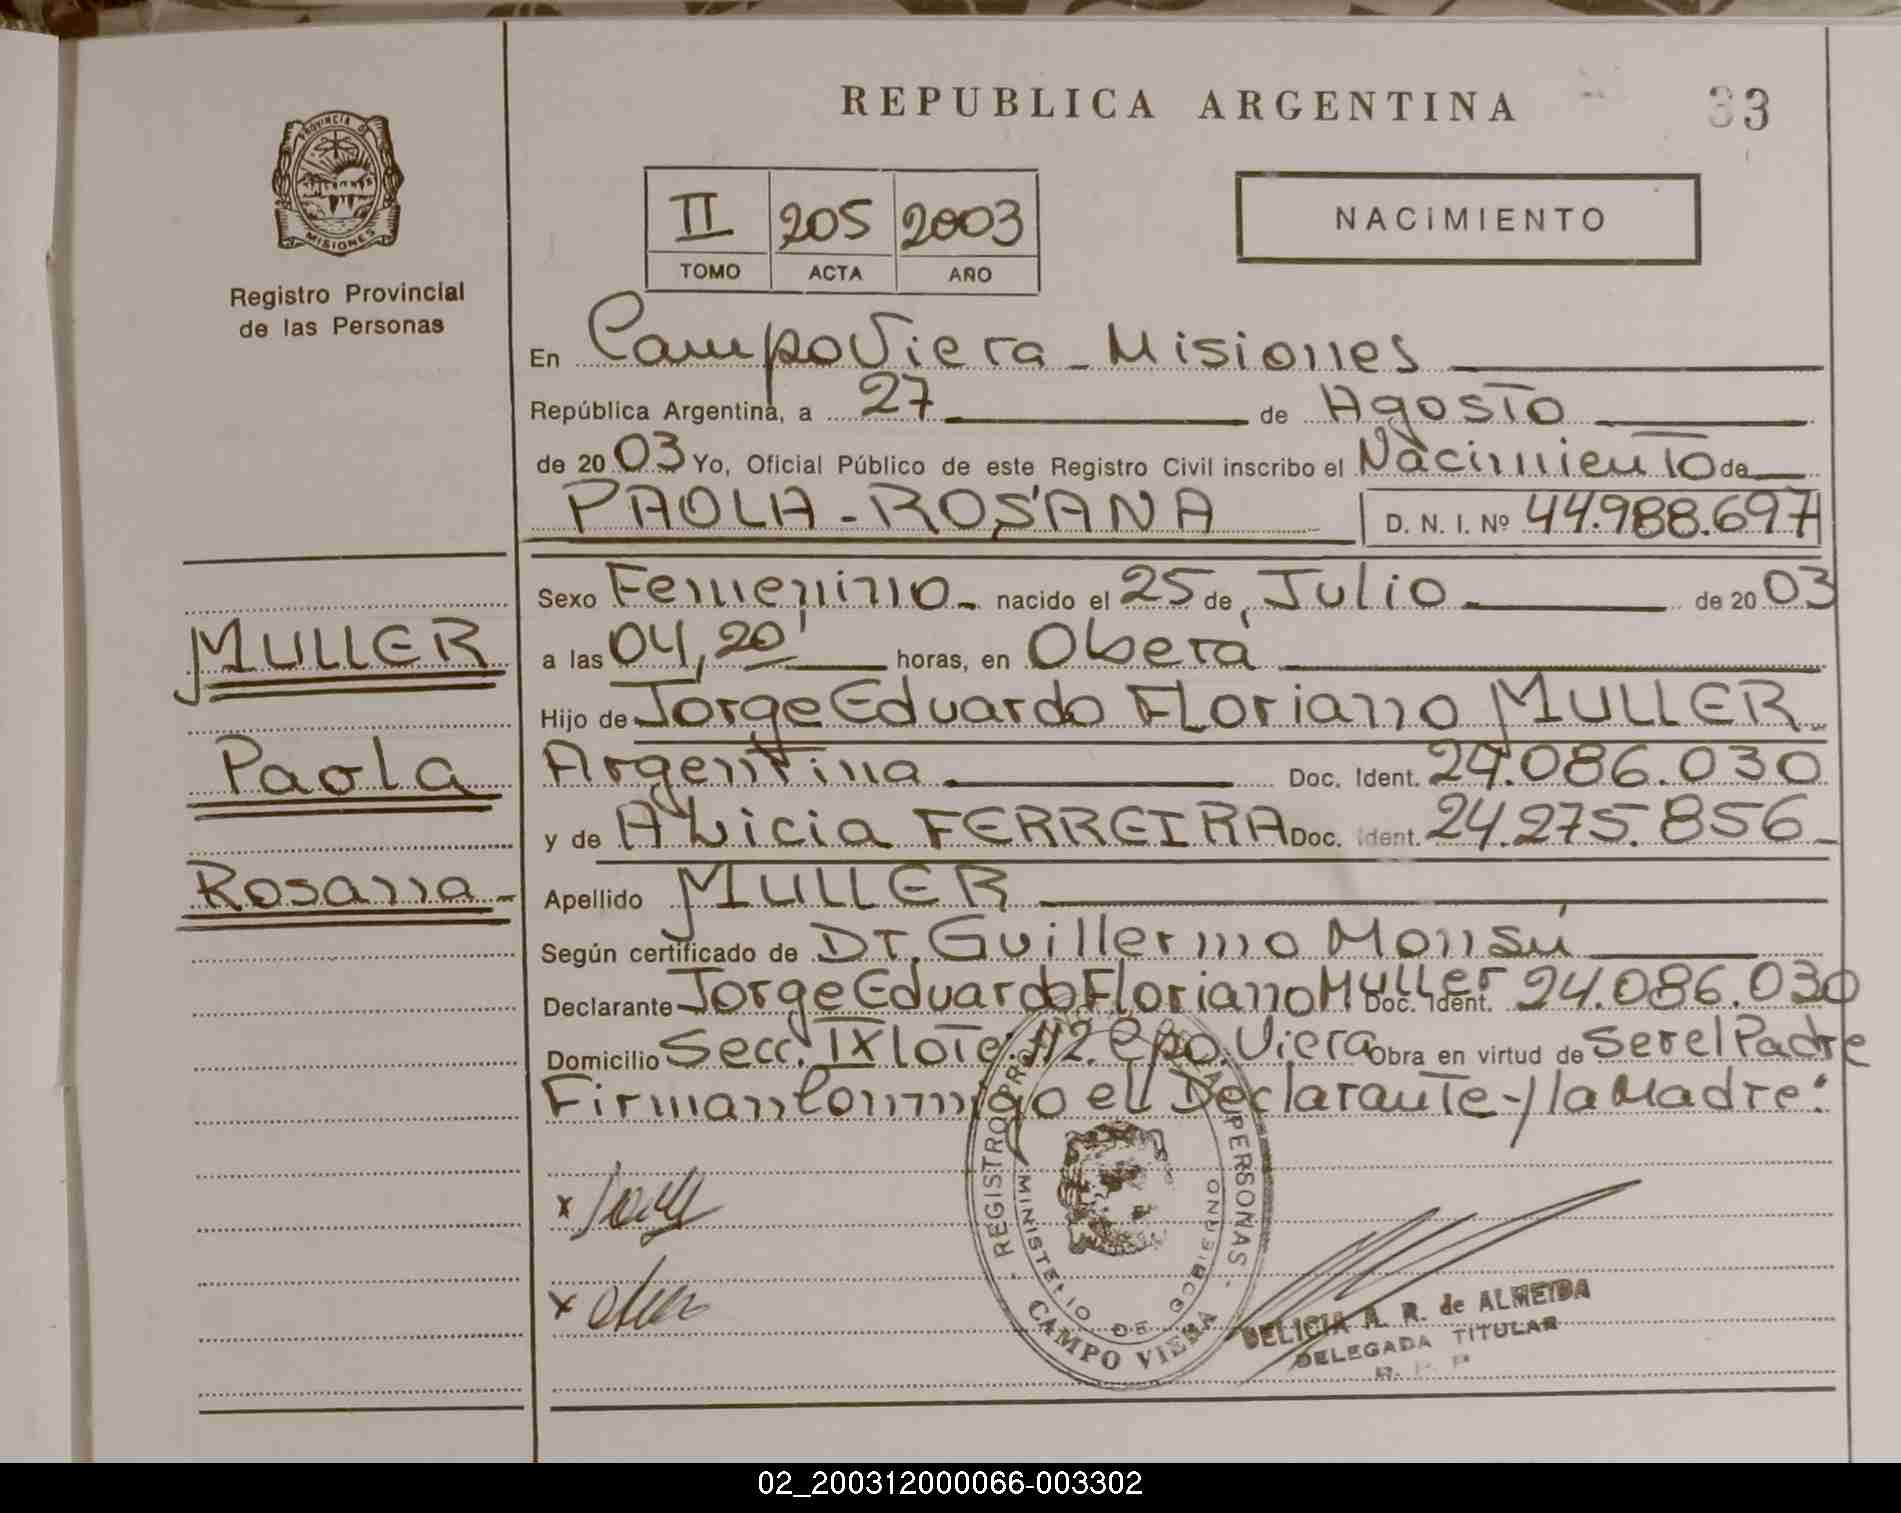 REPUBLICA ARGENTINA
33
PROVINCIA D
MISIONES
Registro Provincial
de las Personas
II 205 2003
TOMO ACTA AÑO
NACIMIENTO
En Campo Viera - Misiones
República Argentina, a 27 de Agosto
de 2003 Yo, Oficial Público de este Registro Civil inscribo el Nacimiento de
PAOLA - ROSANA D. N. I. Nº 44.988.697
Sexo Femenino - nacido el 25 de Julio de 2003
MULLER
a las 04,20' horas, en Oberá
Hijo de Jorge Eduardo Floriano MULLER
Paola
Argentina Doc. Ident. 24.086.030
y de Alicia FERREIRA Doc. Ident. 24.275.856 -
Rosana -
Apellido MULLER
Según certificado de Dr. Guillermo Monsú
Declarante Jorge Eduardo Floriano Muller Doc. Ident. 24.086.030
Domicilio Secc. IX lote 112 Cpo. Viera Obra en virtud de Ser el Padre
Firman Conmigo el Declarante y la Madre.
REGISTRO PERSONAS
MINISTERIO DE GOBIERNO
CAMPO VIERA
x
x
DELICIA A. R. de ALMEIDA
DELEGADA TITULAR
02_200312000066-003302